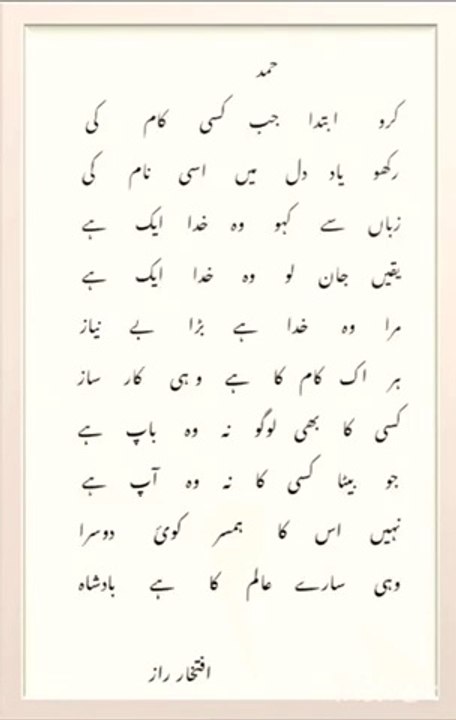 حمد
کرو ابتدا جب کسی کام کی
رکھو یاد دل میں اسی نام کی
زباں سے کہو وہ خدا ایک ہے
یقیں جان لو وہ خدا ایک ہے
مرا وہ خدا ہے بڑا بے نیاز
ہر اک کام کا ہے وہی کار ساز
کسی کا بھی لوگو نہ وہ باپ ہے
جو بیٹا کسی کا نہ وہ آپ ہے
نہیں اس کا ہمسر کوئ دوسرا
وہی سارے عالم کا ہے بادشاہ
افتخار راز